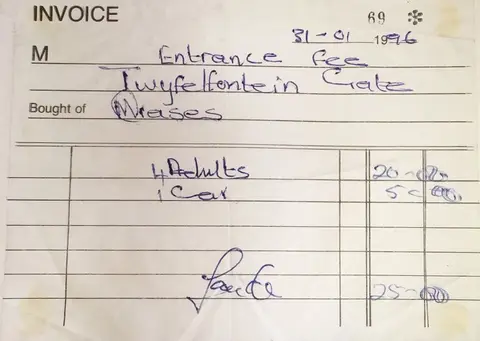 INVOICE
69
31-01 1996
M Entrance fee
Twyfelfontein Gate
Bought of Mases
4 Adults 20-00
1 Car 5-00
25-00